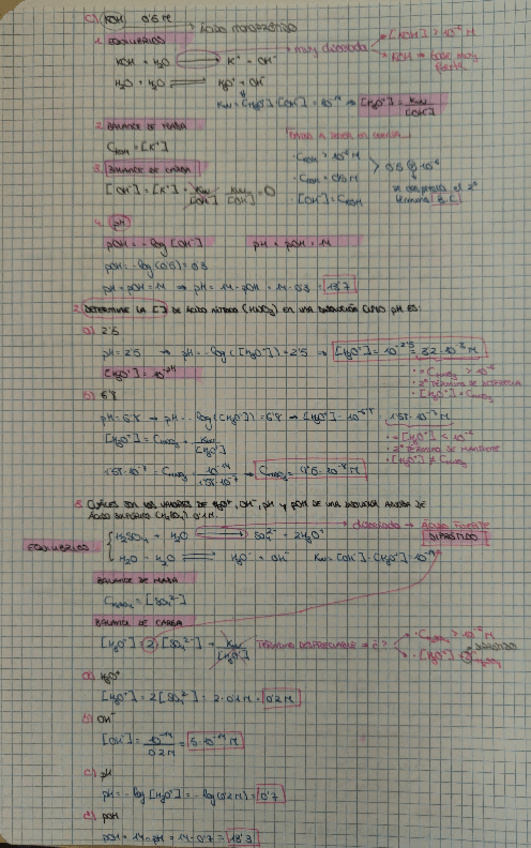 c) KOH 0.5 M
1. EQUILIBRIOS → muy disociada → [KOH] > 10⁻⁶ M
KOH + H₂O → K⁺ + OH⁻ • KOH → base muy fuerte
H₂O + H₂O ⇌ H₃O⁺ + OH⁻
Kw = [H₃O⁺]·[OH⁻] = 10⁻¹⁴ → [H₃O⁺] = Kw/[OH⁻]
2. BALANCE DE MASA
C_KOH = [K⁺]
3. BALANCE DE CARGA
• C_KOH > 10⁻⁶ M
• C_KOH = 0.5 M
• [OH⁻] = C_KOH
> 0.5 > 10⁻⁶
se desprecia el 2º término B.C
4. pH
pOH = -log [OH⁻] pH + pOH = 14
pOH = -log (0.5) = 0.3
pH + pOH = 14 → pH = 14 - pOH = 14 - 0.3 = 13.7
2. DETERMINE LA [ ] DE ÁCIDO NÍTRICO (HNO₃) EN UNA DISOLUCIÓN CUYO pH ES:
a) 2.5
pH = 2.5 → pH = -log([H₃O⁺]) = 2.5 → [H₃O⁺] = 10⁻²·⁵ = 3.2·10⁻³ M
[H₃O⁺] = 10⁻²·⁵
• C_HNO₃ > 10⁻⁶
• 2º TÉRMINO SE DESPRECIA
• [H₃O⁺] = C_HNO₃
b) 6.8
pH = 6.8 → pH = -log([H₃O⁺]) = 6.8 → [H₃O⁺] = 10⁻⁶·⁸ = 1.58·10⁻⁷ M
[H₃O⁺] = C_HNO₃ + Kw/[H₃O⁺]
• [H₃O⁺] < 10⁻⁶
• 2º TÉRMINO SE MANTIENE
• [H₃O⁺] ≠ C_HNO₃
1.58·10⁻⁷ = C_HNO₃ + 10⁻¹⁴/1.58·10⁻⁷ → C_HNO₃ = 9.5·10⁻⁸ M
3. CUÁLES SON LOS VALORES DE H₃O⁺, OH⁻, pH y pOH DE UNA DISOLUCIÓN ACUOSA DE
ÁCIDO SULFÚRICO (H₂SO₄) 0.1 M.
→ disociado → Ácido fuerte
DIPRÓTIDO
EQUILIBRIOS
H₂SO₄ + H₂O → SO₄²⁻ + 2H₃O⁺
H₂O + H₂O ⇌ H₃O⁺ + OH⁻ Kw = [OH⁻]·[H₃O⁺] = 10⁻¹⁴
BALANCE DE MASA
C_H₂SO₄ = [SO₄²⁻]
BALANCE DE CARGA
[H₃O⁺] = 2[SO₄²⁻] + Kw/[H₃O⁺] TÉRMINO DESPRECIABLE → ¿? • C_H₂SO₄ > 10⁻⁶ M
a) H₃O⁺
[H₃O⁺] = 2[SO₄²⁻] = 2·0.1 M = 0.2 M
b) OH⁻
[OH⁻] = 10⁻¹⁴/0.2 M = 5·10⁻¹⁴ M
c) pH
pH = -log [H₃O⁺] = -log(0.2 M) = 0.7
d) pOH
pOH = 14 - pH = 14 - 0.7 = 13.3